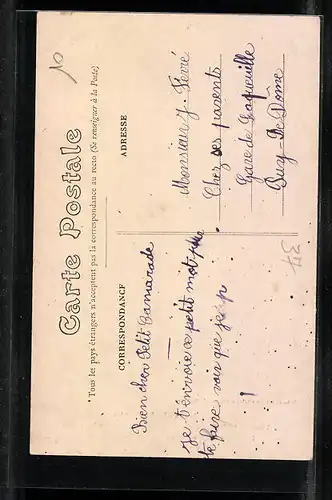 Carte Postale
Tous les pays étrangers n'acceptent pas la correspondance au recto (Se renseigner à la Poste)
CORRESPONDANCE
ADRESSE
Bien cher Petit Camarade
je t'envoie ce petit mot pour
te faire voir que je p
Monsieur J. Fevré
Chez ses parents
Gare de Laqueuille
Puy-de-Dôme